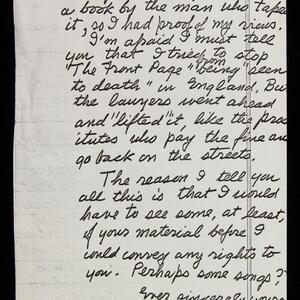 a book by the man who taped
it, so I had proof of my views.
I'm afraid I must tell
you that I tried to stop
"The Front Page" from being "seen
to death" in England. But
the lawyers went ahead
and "lifted" it, like the pros-
itutes who pay the fine and
go back on the streets.
The reason I tell you
all this is that I would
have to see some, at least,
of your material before I
could convey any rights to
you. Perhaps some songs?
Ever sincerely yours